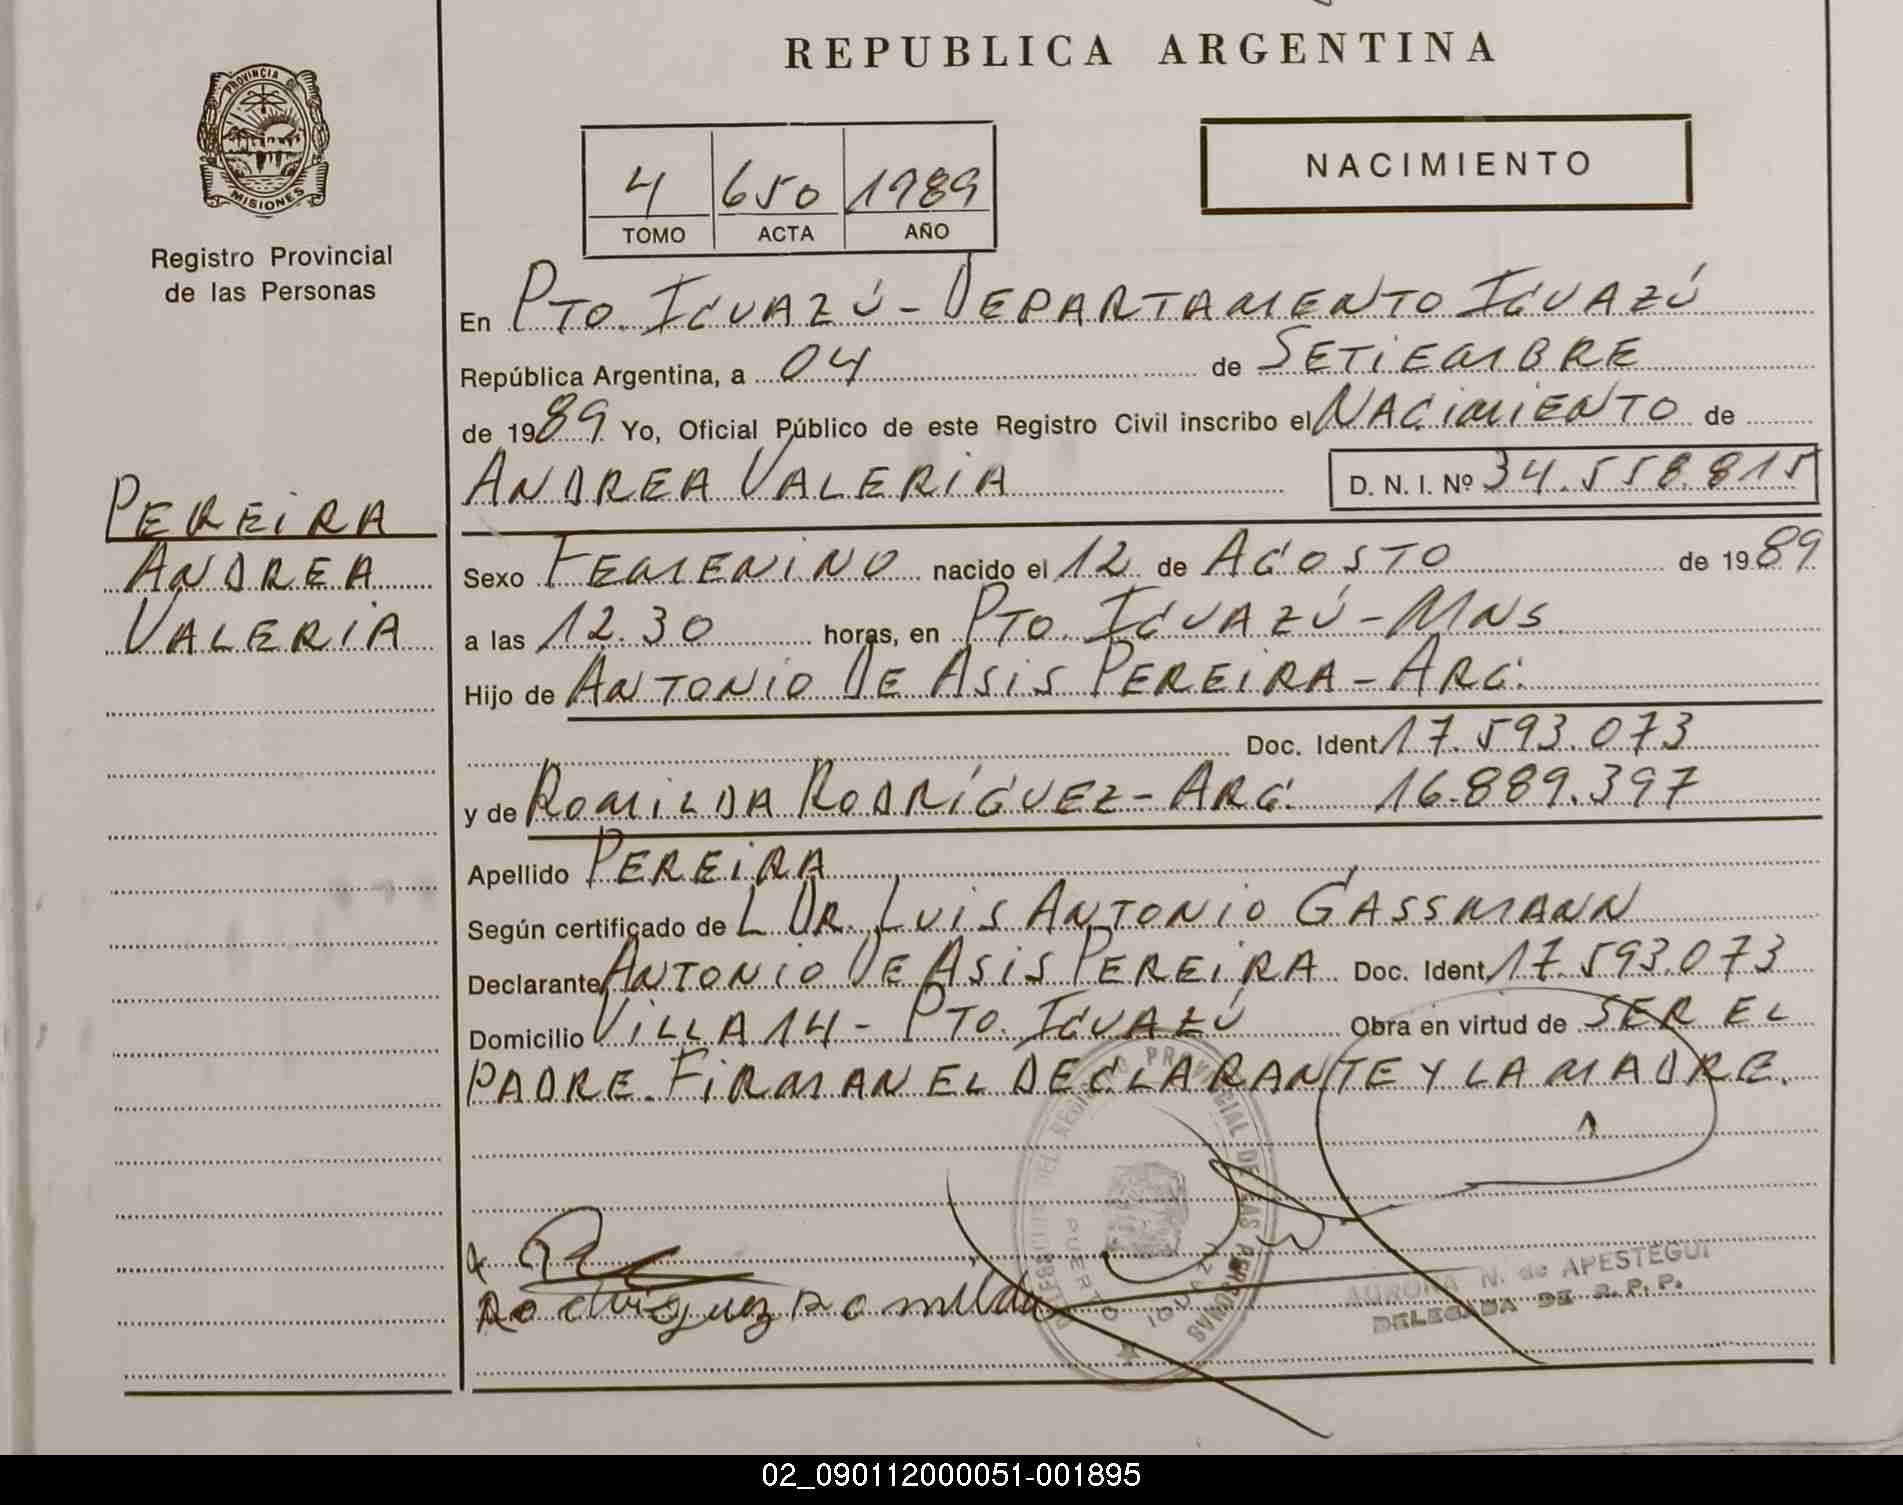 REPUBLICA ARGENTINA
PROVINCIA DE
MISIONES
Registro Provincial
de las Personas
NACIMIENTO
4 650 1989
TOMO ACTA AÑO
En PTO. IGUAZÚ - DEPARTAMENTO IGUAZÚ
República Argentina, a 04 de SETIEMBRE
de 1989 Yo, Oficial Público de este Registro Civil inscribo el NACIMIENTO de
ANDREA VALERIA D. N. I. Nº 34.558.815
PEREIRA
ANDREA
VALERIA
Sexo FEMENINO nacido el 12 de AGOSTO de 1989
a las 12.30 horas, en PTO. IGUAZÚ - MNS
Hijo de ANTONIO DE ASIS PEREIRA - ARG.
Doc. Ident 17.593.073
y de ROMILDA RODRÍGUEZ - ARG. 16.889.397
Apellido PEREIRA
Según certificado de L DR. LUIS ANTONIO GASSMANN
Declarante ANTONIO DE ASIS PEREIRA Doc. Ident 17.593.073
Domicilio VILLA 14 - PTO. IGUAZÚ Obra en virtud de SER EL
PADRE. FIRMAN EL DECLARANTE Y LA MADRE.
REGISTRO PROVINCIAL DE LAS PERSONAS
PUERTO IGUAZU
Rodriguez Romilda
AURORA N. de APESTEGUI
DELEGADA DE R. P. P.
02_090112000051-001895